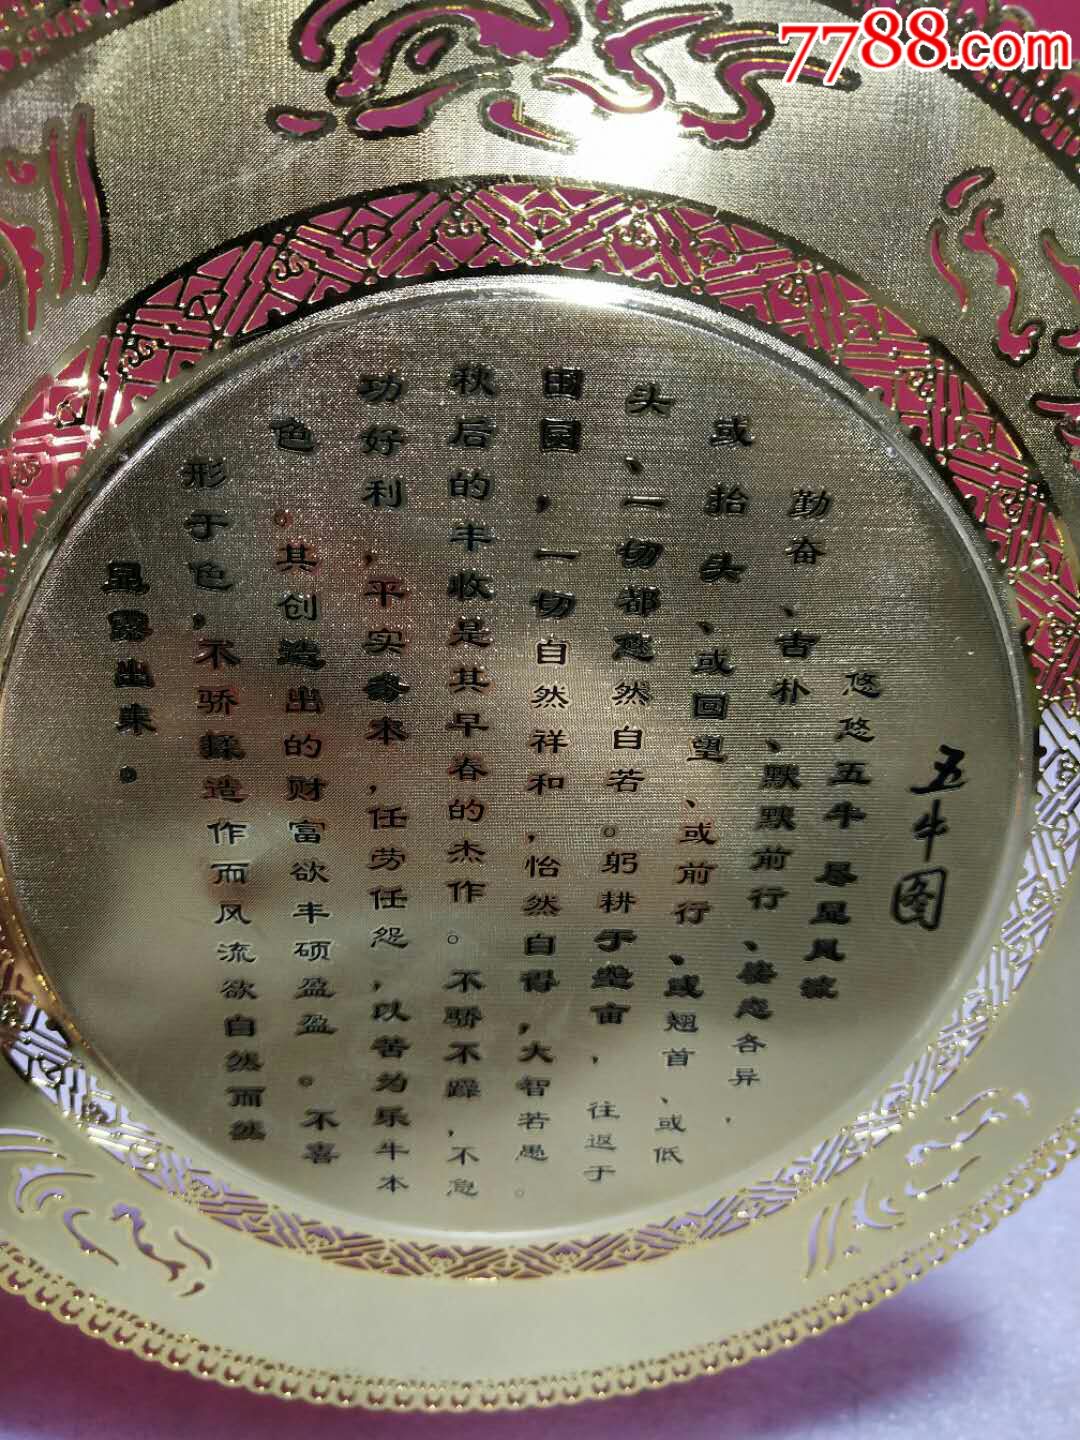 7788.com
五牛图
悠悠五牛尽显风流
勤奋、古朴、默默前行、姿态各异，
或抬头、或回望、或前行、或翘首、或低
头、一切都悠然自若。躬耕于垄亩，往返于
田园，一切自然祥和，怡然自得，大智若愚。
秋后的丰收是其早春的杰作。不骄不躁，不急
功好利，平实务本，任劳任怨，以苦为乐牛本
色。其创造出的财富欲丰硕盈盈。不喜
形于色，不骄揉造作而风流欲自然而然
显露出来。